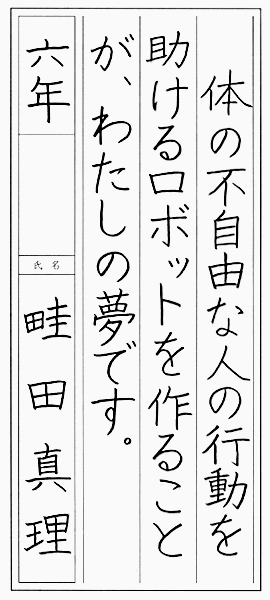 体の不自由な人の行動を
助けるロボットを作ること
が、わたしの夢です。
六年
氏名
畦田真理